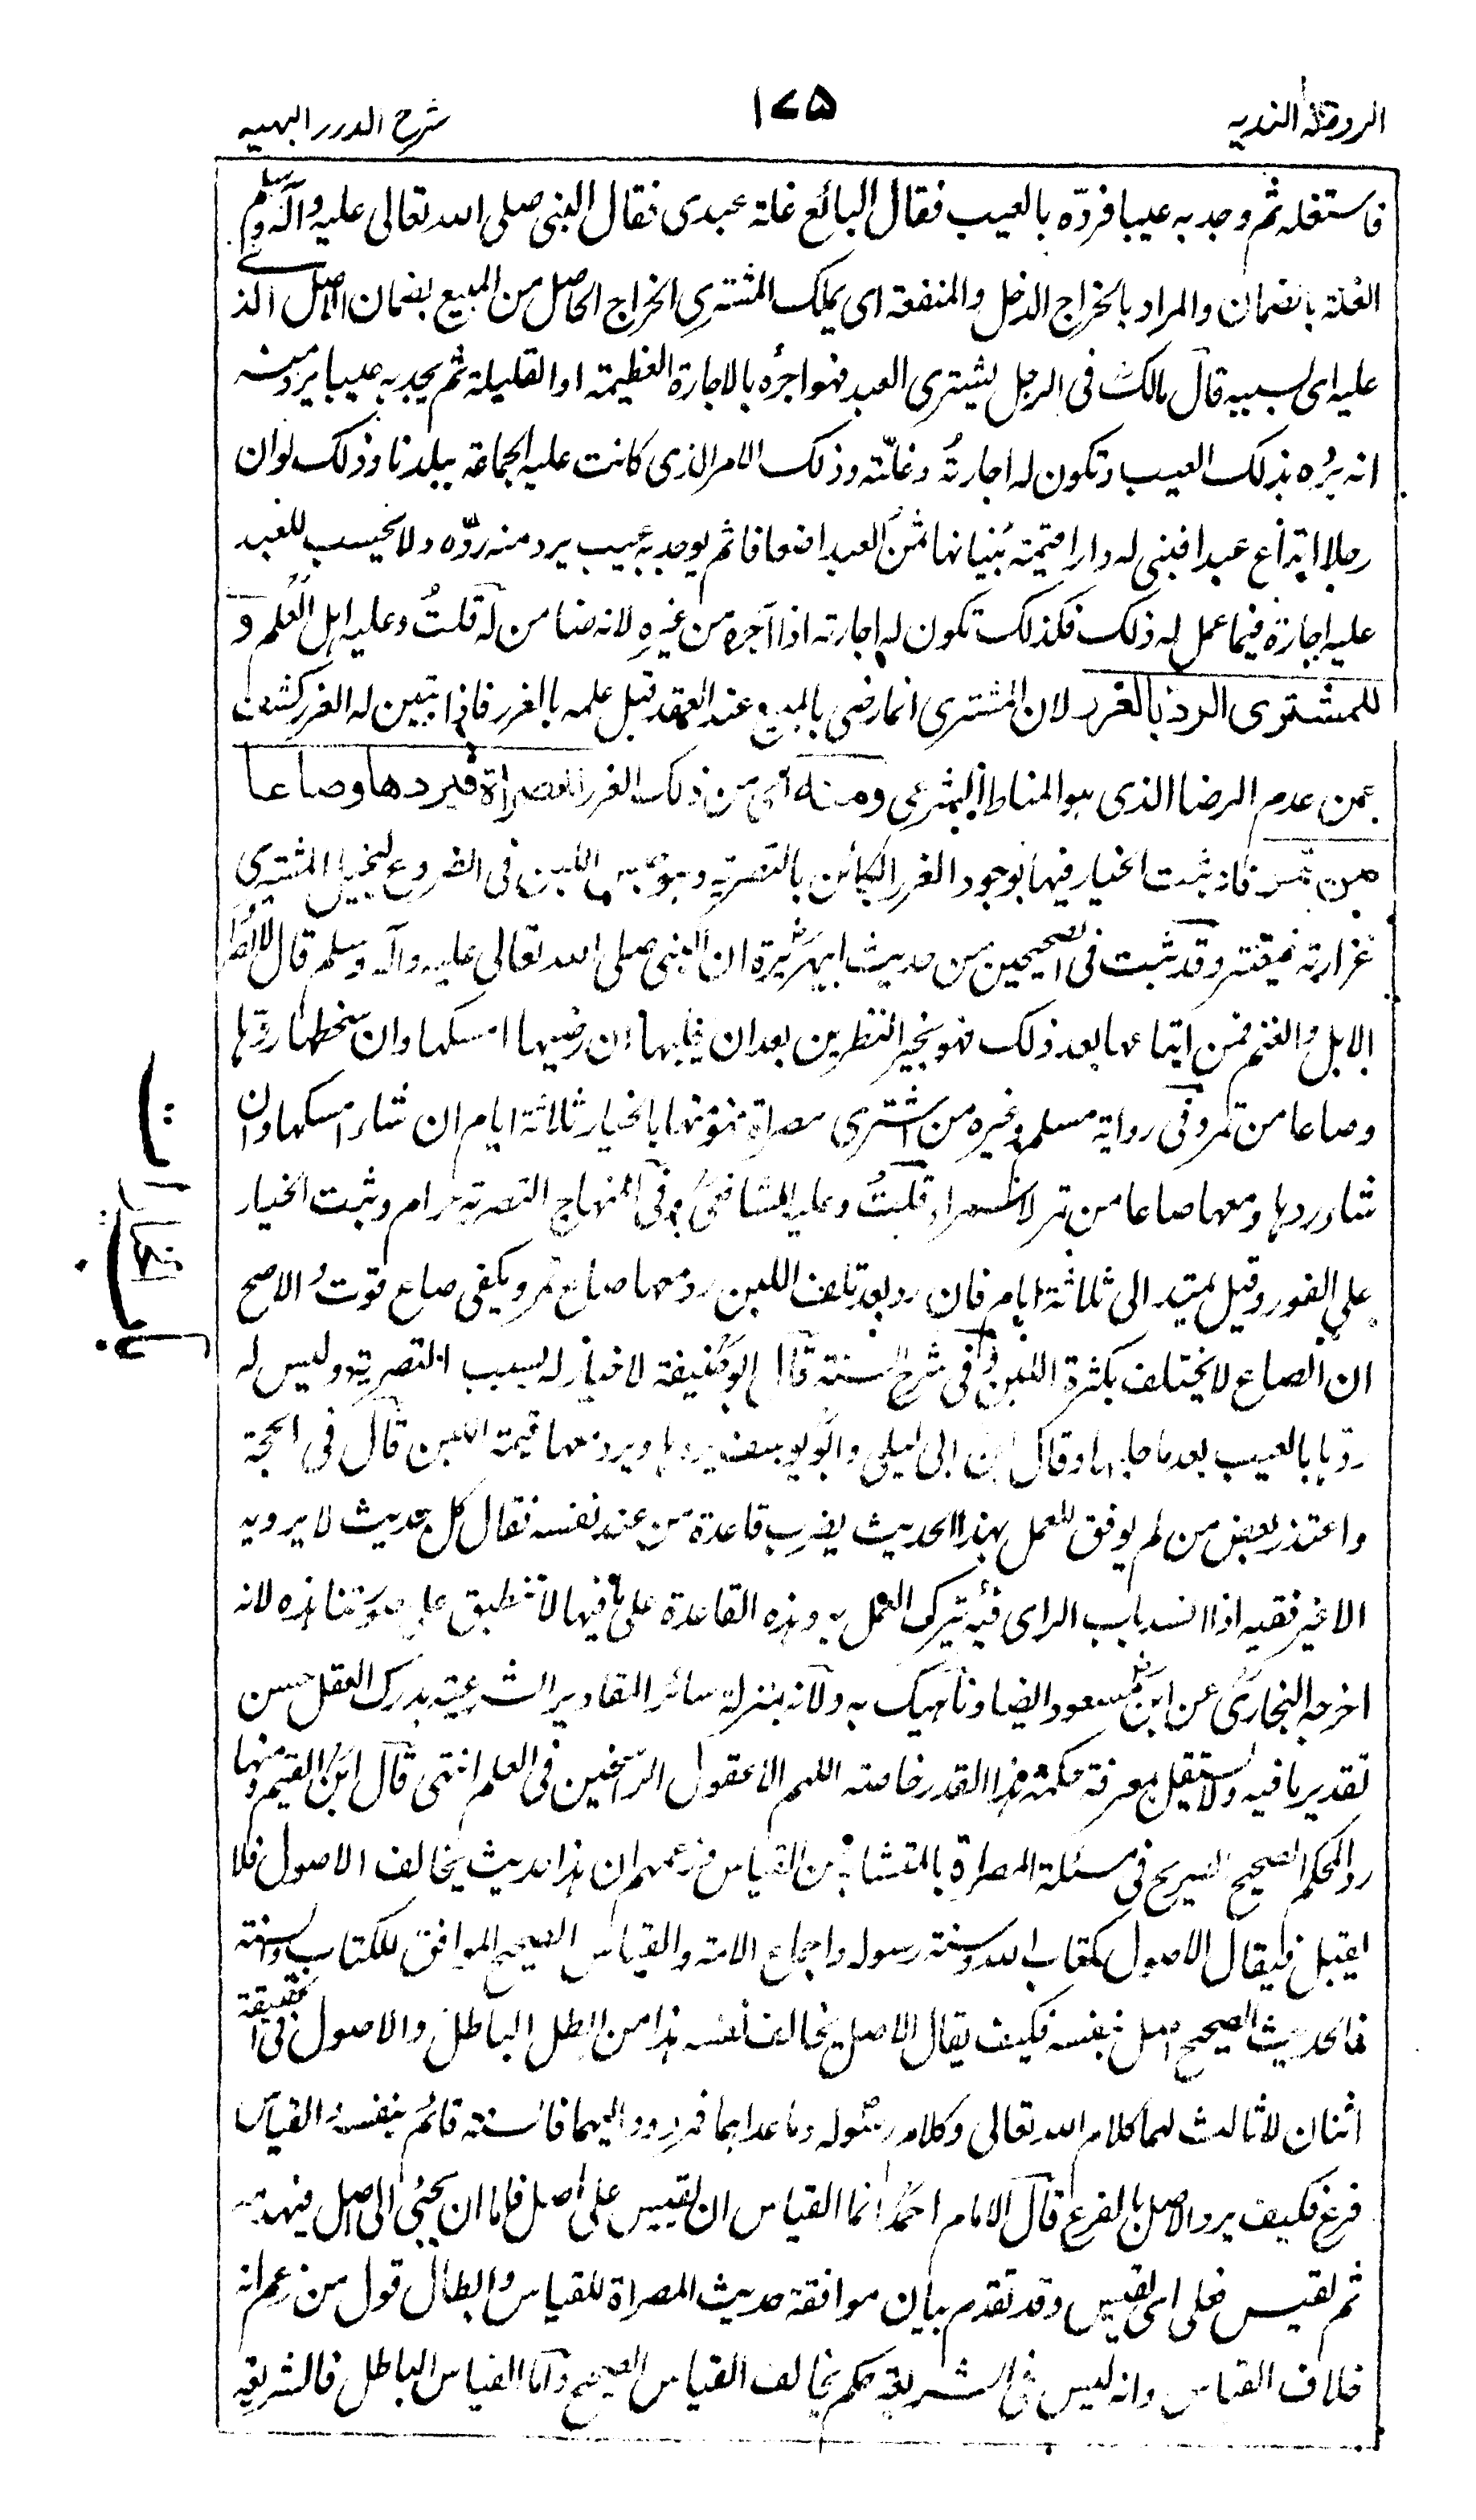 الروضة الندية
١٧٥
شرح الدرر البهية
فاستغله ثم وجد به عيبا فردّه بالعيب فقال البائع غلة عبدى فقال النبى صلى الله تعالى عليه وآله وسلم
الغلة بالضمان والمراد بالخراج الدخل والمنفعة اى يملك المشترى الخراج الحاصل من المبيع بضمان الاصل الذى
عليه اى بسببه قال مالك فى الرجل يشترى العبد فيؤاجره بالاجارة العظيمة او القليلة ثم يجد به عيبا يرد منه
انه يرُده بذلك العيب وتكون له اجارتهُ وغلّته وذلك الامر الذى كانت عليه الجماعة ببلدنا وذلك لو ان
رجلا ابتاع عبدا فبنى له دارا قيمة بُنيانها ثمنُ العبد اضعافا ثم يوجد به عيب يرد منه ردّه ولا يحسب للعبد
عليه اجارة فيما عمل له ذلك فكذلك تكون له اجارته اذا آجره من غيرهِ لانه ضامن له قلتُ وعليه اهل العلم و
للمشترى الرد بالغرر لان المشترى انما رضى بالمبيع عند العقد قبل علمه بالغرر فاذا تبين له الغرر كشف
عن عدم الرضا الذى هو المناط الشرعى ومنه اى من ذلك الغرر المصراة فيردها وصاعا
من تمر فانه ثبت الخيار فيها بوجود الغرر الكائن بالتصرية وهو حبس اللبن فى الضروع ليخيل المشترى
غزارته فيغتر وقد ثبت فى الصحيحين من حديث ابى هريرة ان النبى صلى الله تعالى عليه وآله وسلم قال لا تصروا
الابل والغنم فمن ابتاعها بعد ذلك فهو بخير النظرين بعد ان يحلبها ان رضيها امسكها وان سخطها ردّها
وصاعا من تمر وفى رواية مسلم وغيره من اشترى مصراة فهو منها بالخيار ثلاثة ايام ان شاء امسكها وان
شاء ردها ومعها صاعا من تمر لا سمراء قلتُ وعليه الشافعى وفى المنهاج التصرية حرام وثبت الخيار
على الفور وقيل يمتد الى ثلاثة ايام فان رد بعد تلف اللبن رد معها صاع تمر ويكفى صاع قوت والاصح
ان الصاع لا يختلف بكثرة اللبن وفى شرح السنة قال ابو حنيفة لا خيار له بسبب التصرية وليس له
ردّها بالعيب بعد ما حلبها وقال ابن ابى ليلى وابو يوسف يردها ويرد معها قيمة اللبن قال فى الحجة
واعتذر بعض من لم يوفق للعمل بهذا الحديث بضرب قاعدة من عند نفسه فقال كل حديث لا يرويه
الا غير فقيه اذا انسد باب الراى فيه يترك العمل به وهذه القاعدة على ما فيها لا تنطبق على صورتنا هذه لانه
اخرجه البخارى عن ابن مسعود ايضا وناهيك به ولانه بمنزلة سائر المقادير الشرعية يدرك العقل حسن
تقدير ما فيه ولا يستقل بمعرفة حكمة هذا القدر خاصة اللهم الا عقول الراسخين فى العلم انتهى قال ابن القيم ومنها
رد المحكم الصحيح الصريح فى مسئلة المصراة بالمتشابه من القياس وزعمهم ان هذا حديث يخالف الاصول فلا
يقبل فيقال الاصول كتاب الله وسنة رسوله واجماع الامة والقياس الصحيح الموافق للكتاب والسنة
فالحديث الصحيح اصل بنفسه فكيف يقال الاصل يخالف نفسه هذا من ابطل الباطل والاصول فى الحقيقة
اثنان لا ثالث لهما كلام الله تعالى وكلام رسوله وما عداهما فمردود اليهما فالسنة قائم بنفسه والقياس
فرع فكيف يرد الاصل بالفرع قال الامام احمد انما القياس ان تقيس على اصل فاما ان تجئى الى اصل فيهدمه
ثم تقيس فعلى اى تقيس وقد تقدم بيان موافقة حديث المصراة للقياس وابطال قول من زعم انه
خلاف القياس وانه ليس فى الشريعة حكم يخالف القياس الصحيح واما القياس الباطل فالشريعة
باب الخيارات